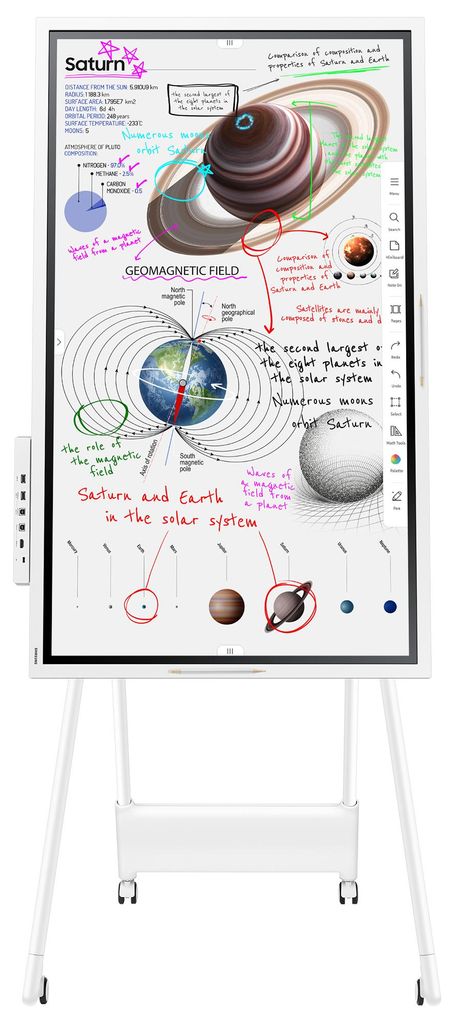 Saturn
DISTANCE FROM THE SUN: 5.910U9 km
RADIUS: 1 188.3 km
SURFACE AREA: 1.795E7 km2
DAY LENGTH: 6d 4h
ORBITAL PERIOD: 248 years
SURFACE TEMPERATURE: -233°C
MOONS: 5
ATMOSPHERE OF PLUTO
COMPOSITION:
NITROGEN - 97.0%
METHANE - 2.5%
CARBON
MONOXIDE - 0.5
Comparison of composition and
properties of Saturn and Earth
the second largest of
the eight planets in
the solar system
Numerous moons
orbit Saturn
Waves of a magnetic
field from a planet
Comparison of
composition and
properties of
Saturn and Earth
Satellites are mainly
composed of stones and
GEOMAGNETIC FIELD
North
magnetic
pole
North
geographical
pole
the second largest o
the eight planets in
the solar system
Numerous moons
orbit Saturn
the role of
the magnetic
field
Axis of rotation
South
magnetic
pole
Waves of
a magnetic
field from
a planet
Saturn and Earth
in the solar system
Mercury
Earth
Mars
Jupiter
Saturn
Uranus
Neptune
Menu
Search
Note On
Pages
Redo
Undo
Select
Math Tools
Palette
Pen
SAMSUNG